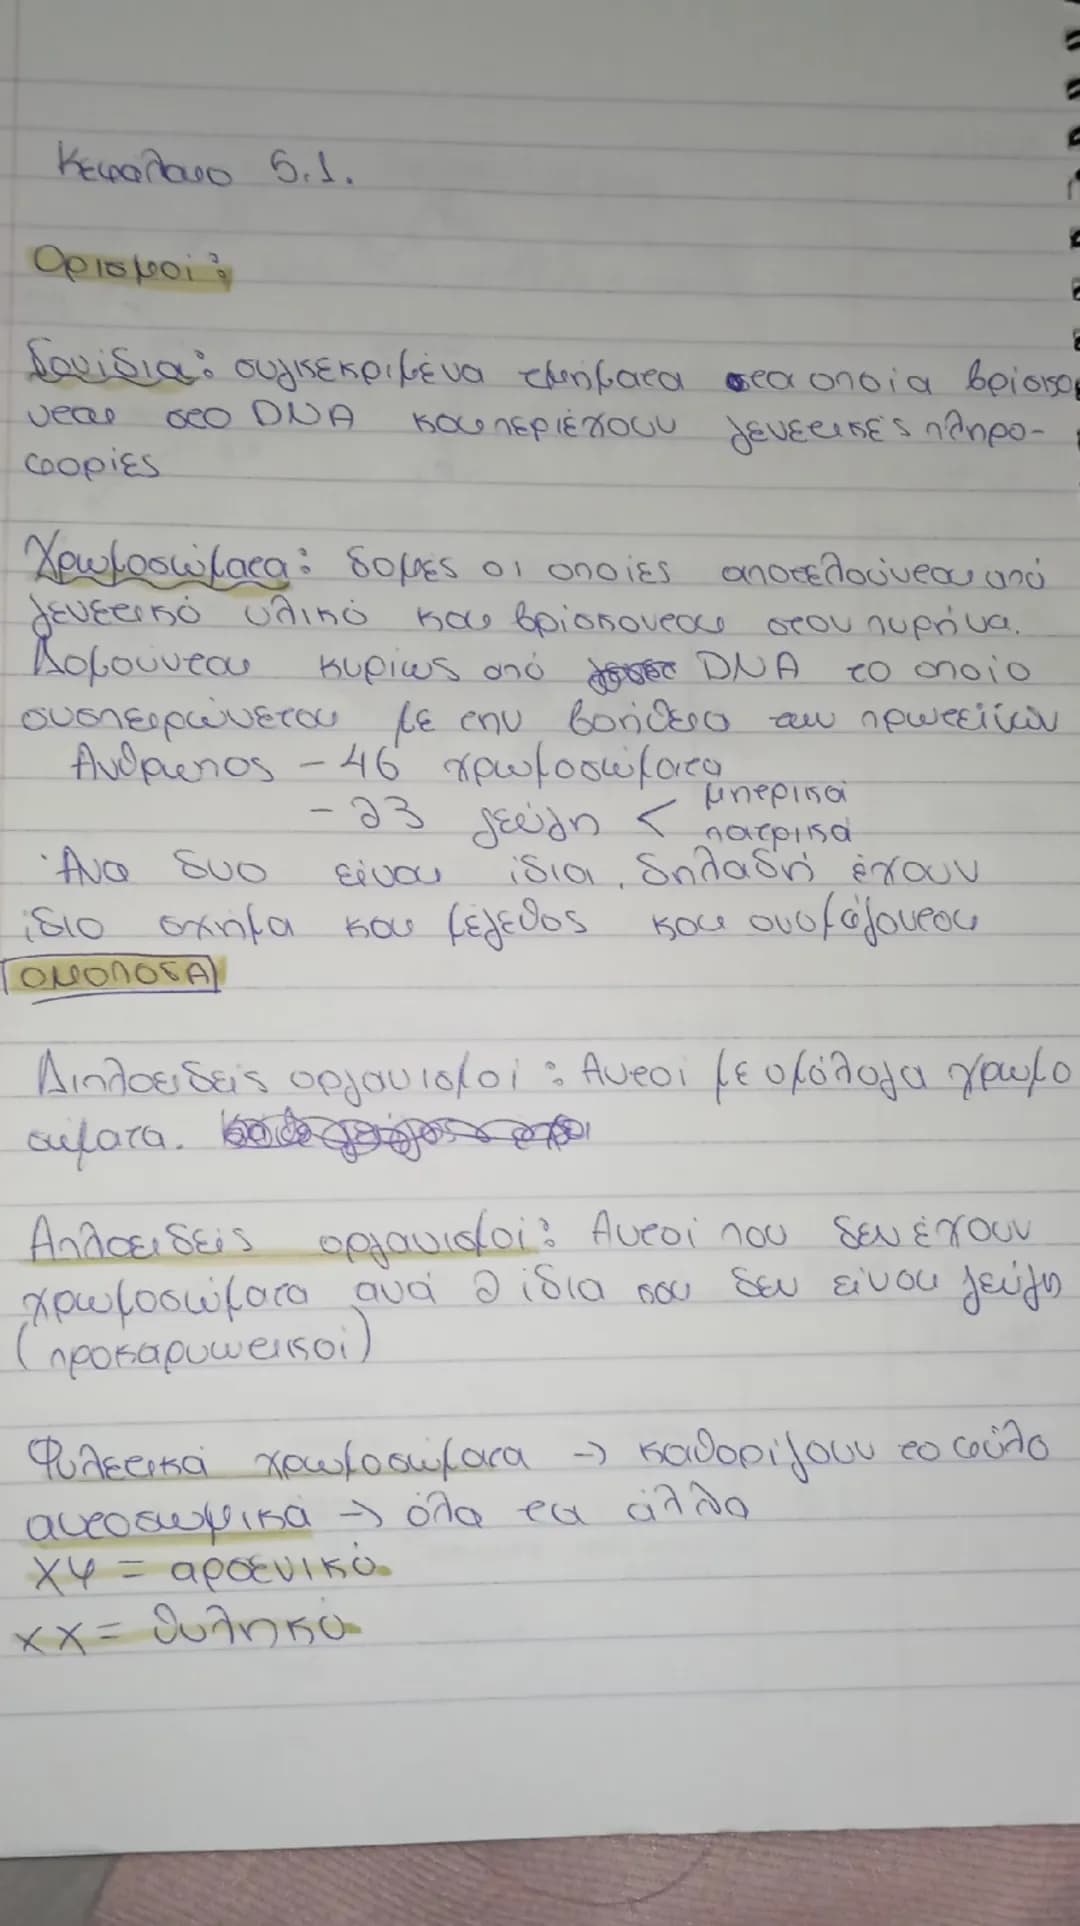 Κεφάλαιο 5.1.
Ορισμοί:
Γονίδια: συγκεκριμένα τμήματα τα οποία βρίσκο
νται στο DNA και περιέχουν γενετικές πληρο-
φορίες
Χρωμοσώματα: δομές οι οποίες αποτελούνται από
γενετικό υλικό και βρίσκονται στον πυρήνα.
Δομούνται κυρίως από DNA το οποίο
συσπειρώνεται με την βοήθεια των πρωτεϊνών
Άνθρωπος - 46 χρωμοσώματα
- 23 ζεύγη < μητερικά
πατρικά
Ανα δυο είναι ίδια, δηλαδή έχουν
ίδιο σχήμα και μέγεθος και ονομάζονται
ΟΜΟΛΟΓΑ
Διπλοειδείς οργανισμοί: Αυτοί με ομόλογα χρωμο
σώματα.
Απλοειδείς οργανισμοί: Αυτοί που δεν έχουν
χρωμοσώματα ανά 2 ίδια και δεν είναι ζεύγη
(προκαρυωτικοί)
Φυλετικά χρωμοσώματα → καθορίζουν το φύλο
αυτοσωμικά → όλα τα άλλα
ΧΨ = αρσενικό
ΧΧ = θυληκό